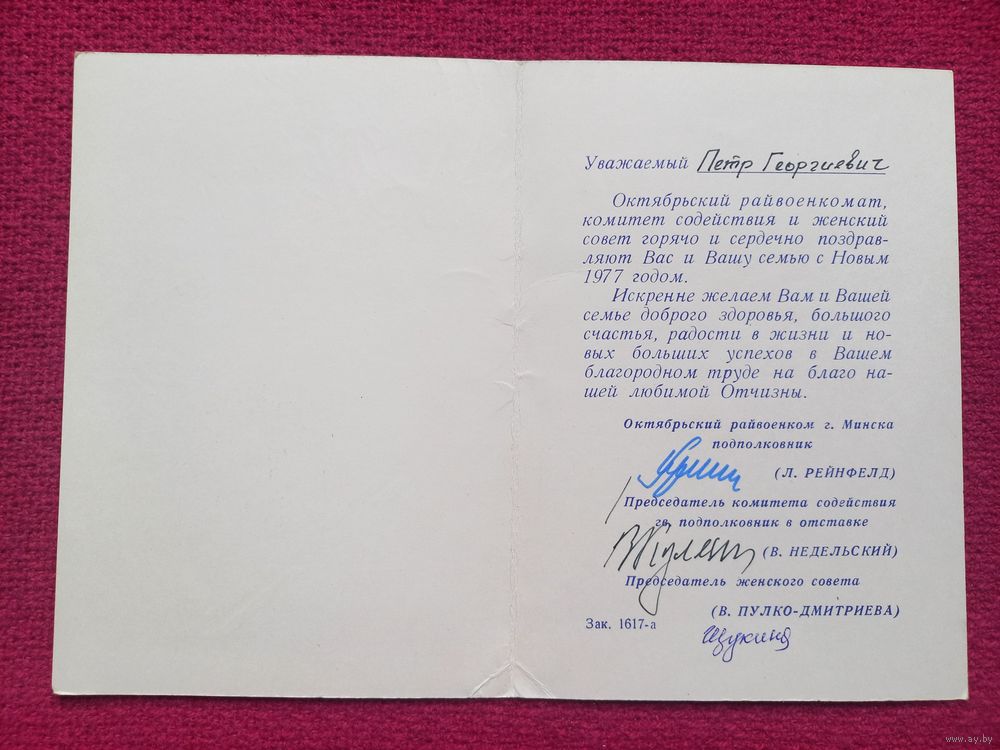 Уважаемый Петр Георгиевич
Октябрьский райвоенкомат,
комитет содействия и женский
совет горячо и сердечно поздрав-
ляют Вас и Вашу семью с Новым
1977 годом.
Искренне желаем Вам и Вашей
семье доброго здоровья, большого
счастья, радости в жизни и но-
вых больших успехов в Вашем
благородном труде на благо на-
шей любимой Отчизны.
Октябрьский райвоенком г. Минска
подполковник
(Л. РЕЙНФЕЛД)
Председатель комитета содействия
гв. подполковник в отставке
(В. НЕДЕЛЬСКИЙ)
Председатель женского совета
(В. ПУЛКО-ДМИТРИЕВА)
Зак. 1617-а
Щукина
www.ay.by